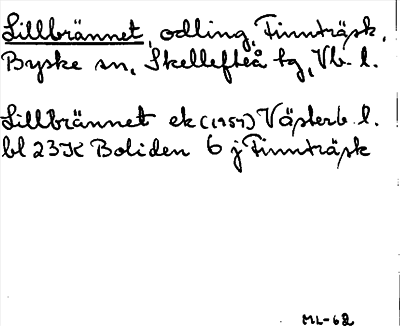 Lillbrännet, odling, Finnträsk,
Byske sn, Skellefteå tg, Vb. l.
Lillbrännet ek (1957) Västerb. l.
bl 23K Boliden 6 j Finnträsk
ML-62